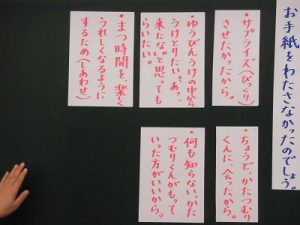 お手紙をわたさなかったのでしょう。
・サプライズ(びっくり)
させたかったから。
・ゆうびんうけの中から
うけとりたい、あっ、
来たな。と思っても
らいたい。
・まつ時間を、楽しく
うれしくなるように
するため(しあわせ)
・ちょうど、かたつむり
くんに、会ったから。
・何も知らない、かた
つむりくんがもって
いった方がいいから。